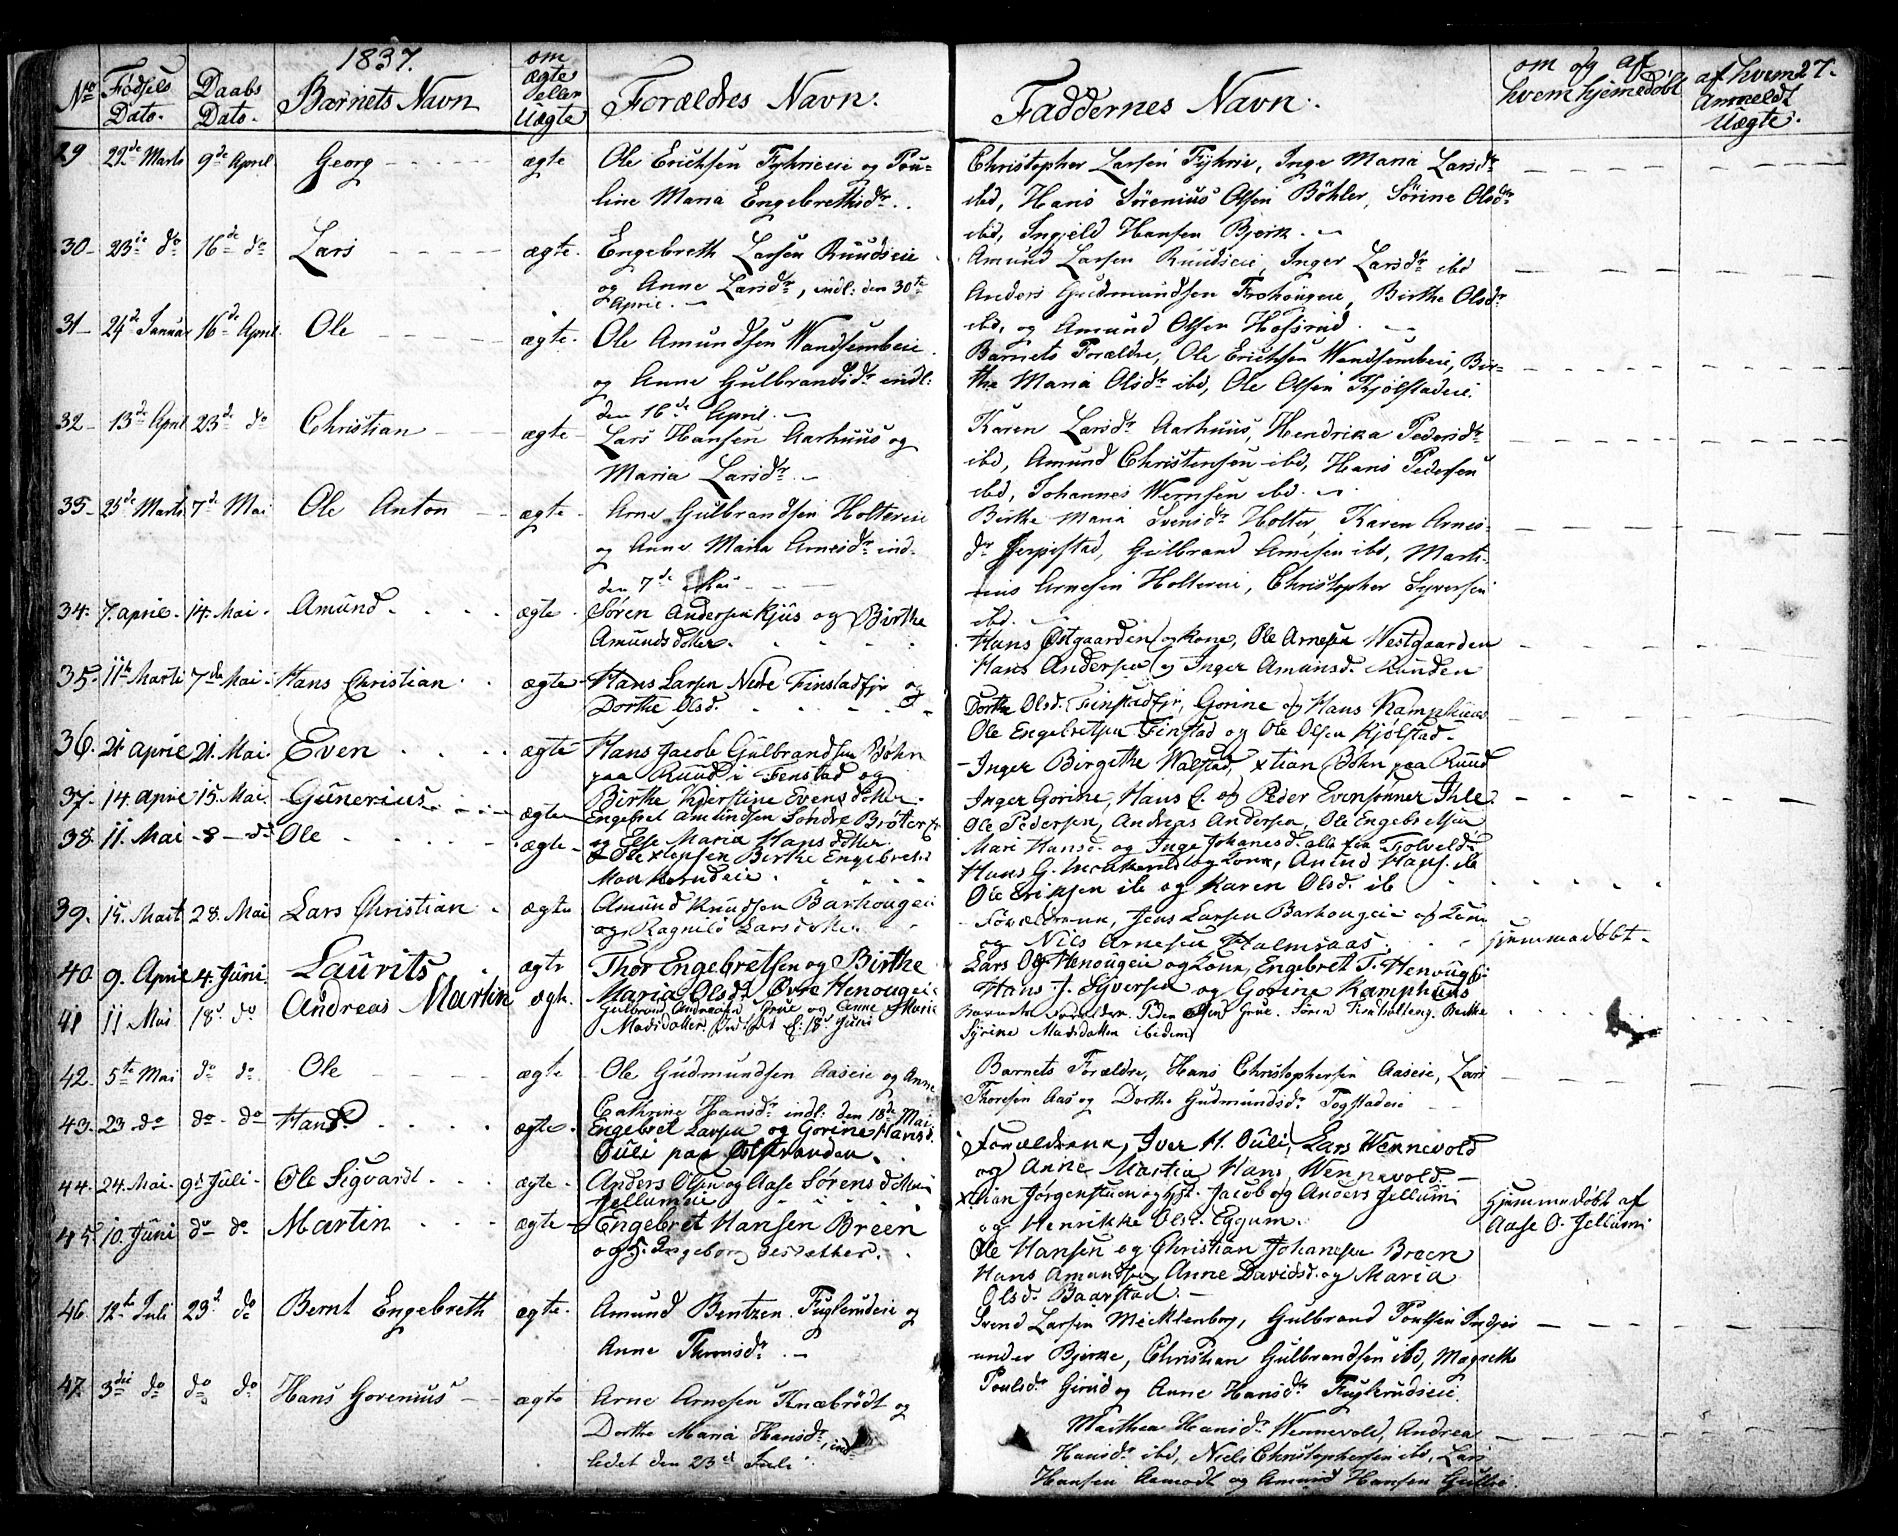 1837.
27.
No Fødsels Dato. Daabs Dato. Barnets Navn om ægte eller Uægte Forældres Navn. Faddernes Navn. om og af hvem hjemedøbt af hvem Anmeldt Uægte.
29 29de Marts 9de April Georg ægte Ole Erichsen og Pou-
line Maria Engebrethsdr.
Christopher Larsen Inge Maria Larsdr
ibd, Hans Sørenius Olsen Bøhler, Sørine Olsdr
ibd, Ingjeld Hansen Bjerk.
30 23de do 16de do Lars ægte Engebreth Larsen Ruudseie
og Anne Larsdr, indl: den 30te
April.
Amund Larsen Ruudseie, Inger Larsdr ibd
Anders Gudmundsen Birthe Olsdr
ibd, og Amund Olsen
31 24de Januar 16de April Ole ægte Ole Amundsen
og Anne Gulbrandsdr indl:
den 16de April.
Barnets Forældre, Ole Erichsen Bir-
the Maria Olsdr ibd, Ole Olsen Kjølstadeie.
32 13de April 23de do Christian ægte Lars Hansen Aarhuus og
Maria Larsdr.
Karen Larsdr Aarhuus, Hendrika Pedersdr
ibd, Amund Christensen ibd, Hans Pedersen
ibd, Johannes ibd.
33 25de Marts 7de Mai Ole Anton ægte Arne Gulbrandsen Holtereie
og Anne Maria Arnesdr ind.
den 7de Mai
Birthe Maria Svensdr Holter, Karen Arnes-
dr Gulbrand Arnesen ibd, Marti-
nus Arnesen Holtereie, Christopher Syversen
ibd.
34. 7. April 14. Mai Amund ægte Søren Andersen Kjus og Birthe
Amundsdotter.
Hans Østgaarden og Kone, Ole Arnesen Westgaarden
Hans Andersen og Inger Amunsd.
35. 11te Marts 7de Mai Hans Christian ægte Hans Larsen Nedre Finstadejr og
Dorthe Olsd.
Dorthe Olsd. Gorine og Hans Kamphuus
Ole Engebretsen Finstad og Ole Olsen Kjølstad.
36. 21 April 21. Mai Even ægte Hans Jacob Gulbrandsen Bøhn
paa Ruud i Fenstad og
Birthe Kjerstine Evensdotter.
Inger Birgithe Walstad, Xtian Bøhn paa Ruud
Inger Gorine, Hans E. og Peder Evensønner Ihle.
37. 14. April 15. Mai. Gunerius ægte Engebret Amundsen Søndre Brøter
og Else Maria Hansdotter
Ole Pedersen, Andreas Andersen, Ole Engebretsen
Mari Hansd. og Inge Johanesd. alle fra
38. 11. Mai do Ole ægte Birthe Engebretsd
Hans G. og Kone, Amund Hans. ib
Ole Eriksen ib og Karen Olsd. ib
39. 15. Mart 28. Mai Lars Christian ægte Amund Knudsen Barhougeie
og Ragnild Larsdotter
Forældrene, Jens Larsen Barhougeie og Kone
og Nils Arnesen
hjemmedøbt.
40 9. April 4. Juni Laurits ægte Thor Engebretsen og Birthe
Maria Olsdr Øvre Henougeie
Lars O. Henougeie og Kone, Engebret T. Henougeie
Hans J. Syversen og Gorine Kamphuus
41 11 Mai 18d. do Andreas Martin ægte Gulbrand Andreasen Grue og Anne Marie
Madsdatter, 18de Juni
Barnets Forældre. Peder Olsen Grue. Søren
Syrine Madsdatter ibidem
42. 5te Mai do do Ole ægte Ole Gudmundsen Aaseie og Anne
Cathrine Hansdr indl: den 18de Mai.
Barnets Forældre, Hans Christophersen Aaseie, Lars
Thoresen Aas og Dorthe Gudmundsdr
43. 23 do do. do Hans ægte Engebret Larsen og Gorine Hansd.
Ouli paa
Forældrene, Iver H. Ouli, Lars Wennevold
og Anne Martia Hans, Wennevold.
44. 24. Mai 9de Juli Ole Sigvard ægte Anders Olsen og Aase Sørensdotter
Jellumeie
Xtian Jørgenstuen og Jacob og Anders Jellumi
og Henrikke Olsd. Eggum.
Hjemmedøbt af
Aase O. Jellumi
45. 10. Juni do do Martin ægte Engebret Hansen Breen
og Ingeborg
Ole Hansen og Christian Johanesen Breen
Hans Amundsen, Anne Davidsd. og Maria
Olsd. Baarstad.
46. 12te Juli 23d do Bernt Engebreth ægte Amund Bentzen Fuglerudeie og
Anne Thoresdr.
Svend Larsen Mecklenborg, Gulbrand Poulsen
under Bjerke, Christian Gulbrandsen ibd, Magrethe
Poulsdr og Anne Hansdr Fuglerudseie
47. 3die do do do Hans Gorenius ægte Arne Arnesen Knæbrødt og
Dorthe Maria Hansdr, ind
ledet den 23d Juli
Marthea Hansdr Wennevold, Andrea
Hansdr ibd, Niels Christophersen ibd, Lars
Hansen Aamodt og Amund Hansen